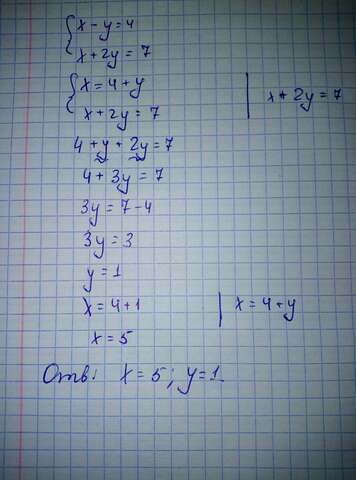 x - y = 4
x + 2y = 7
x = 4 + y
x + 2y = 7 | x + 2y = 7
4 + y + 2y = 7
4 + 3y = 7
3y = 7 - 4
3y = 3
y = 1
x = 4 + 1 | x = 4 + y
x = 5
Отв: x = 5; y = 1